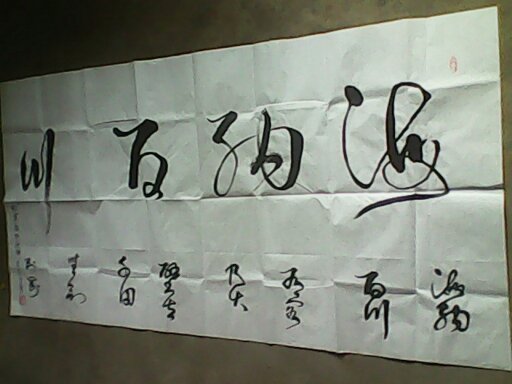 海纳百川
海纳
百川
有容
乃大
壁立
千仞
無欲
则刚